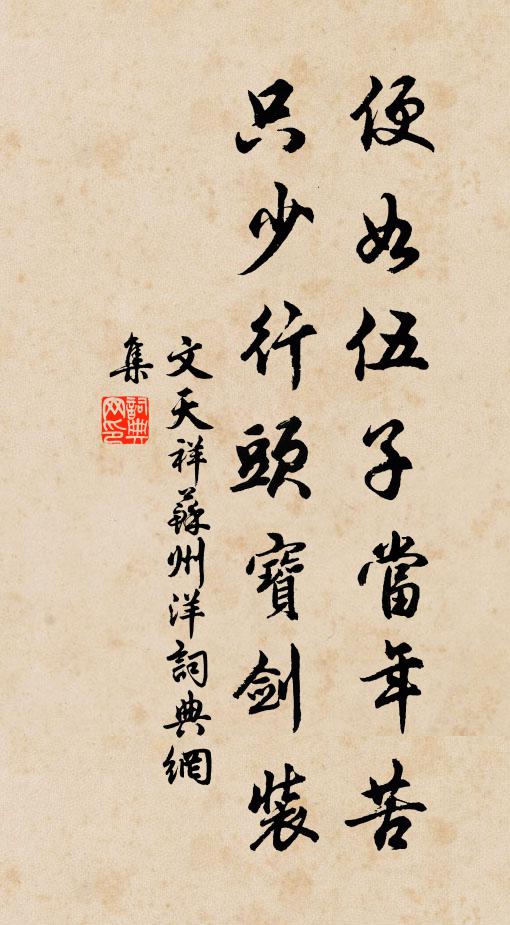 便如伍子當年苦
只少行頭寶劍裝
文天祥蘇州洋詞典網
集
詞典网印